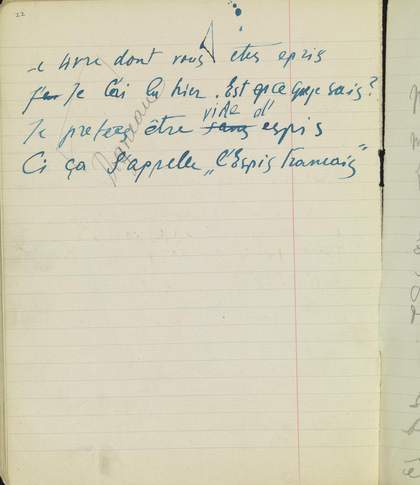 22
Le livre dont vous êtes epris
J'ai Je l'ai lu hier. Est que que je sais?
Je préfère être sans vide d' espris
Ci ça s'appelle "l'Espis francais"